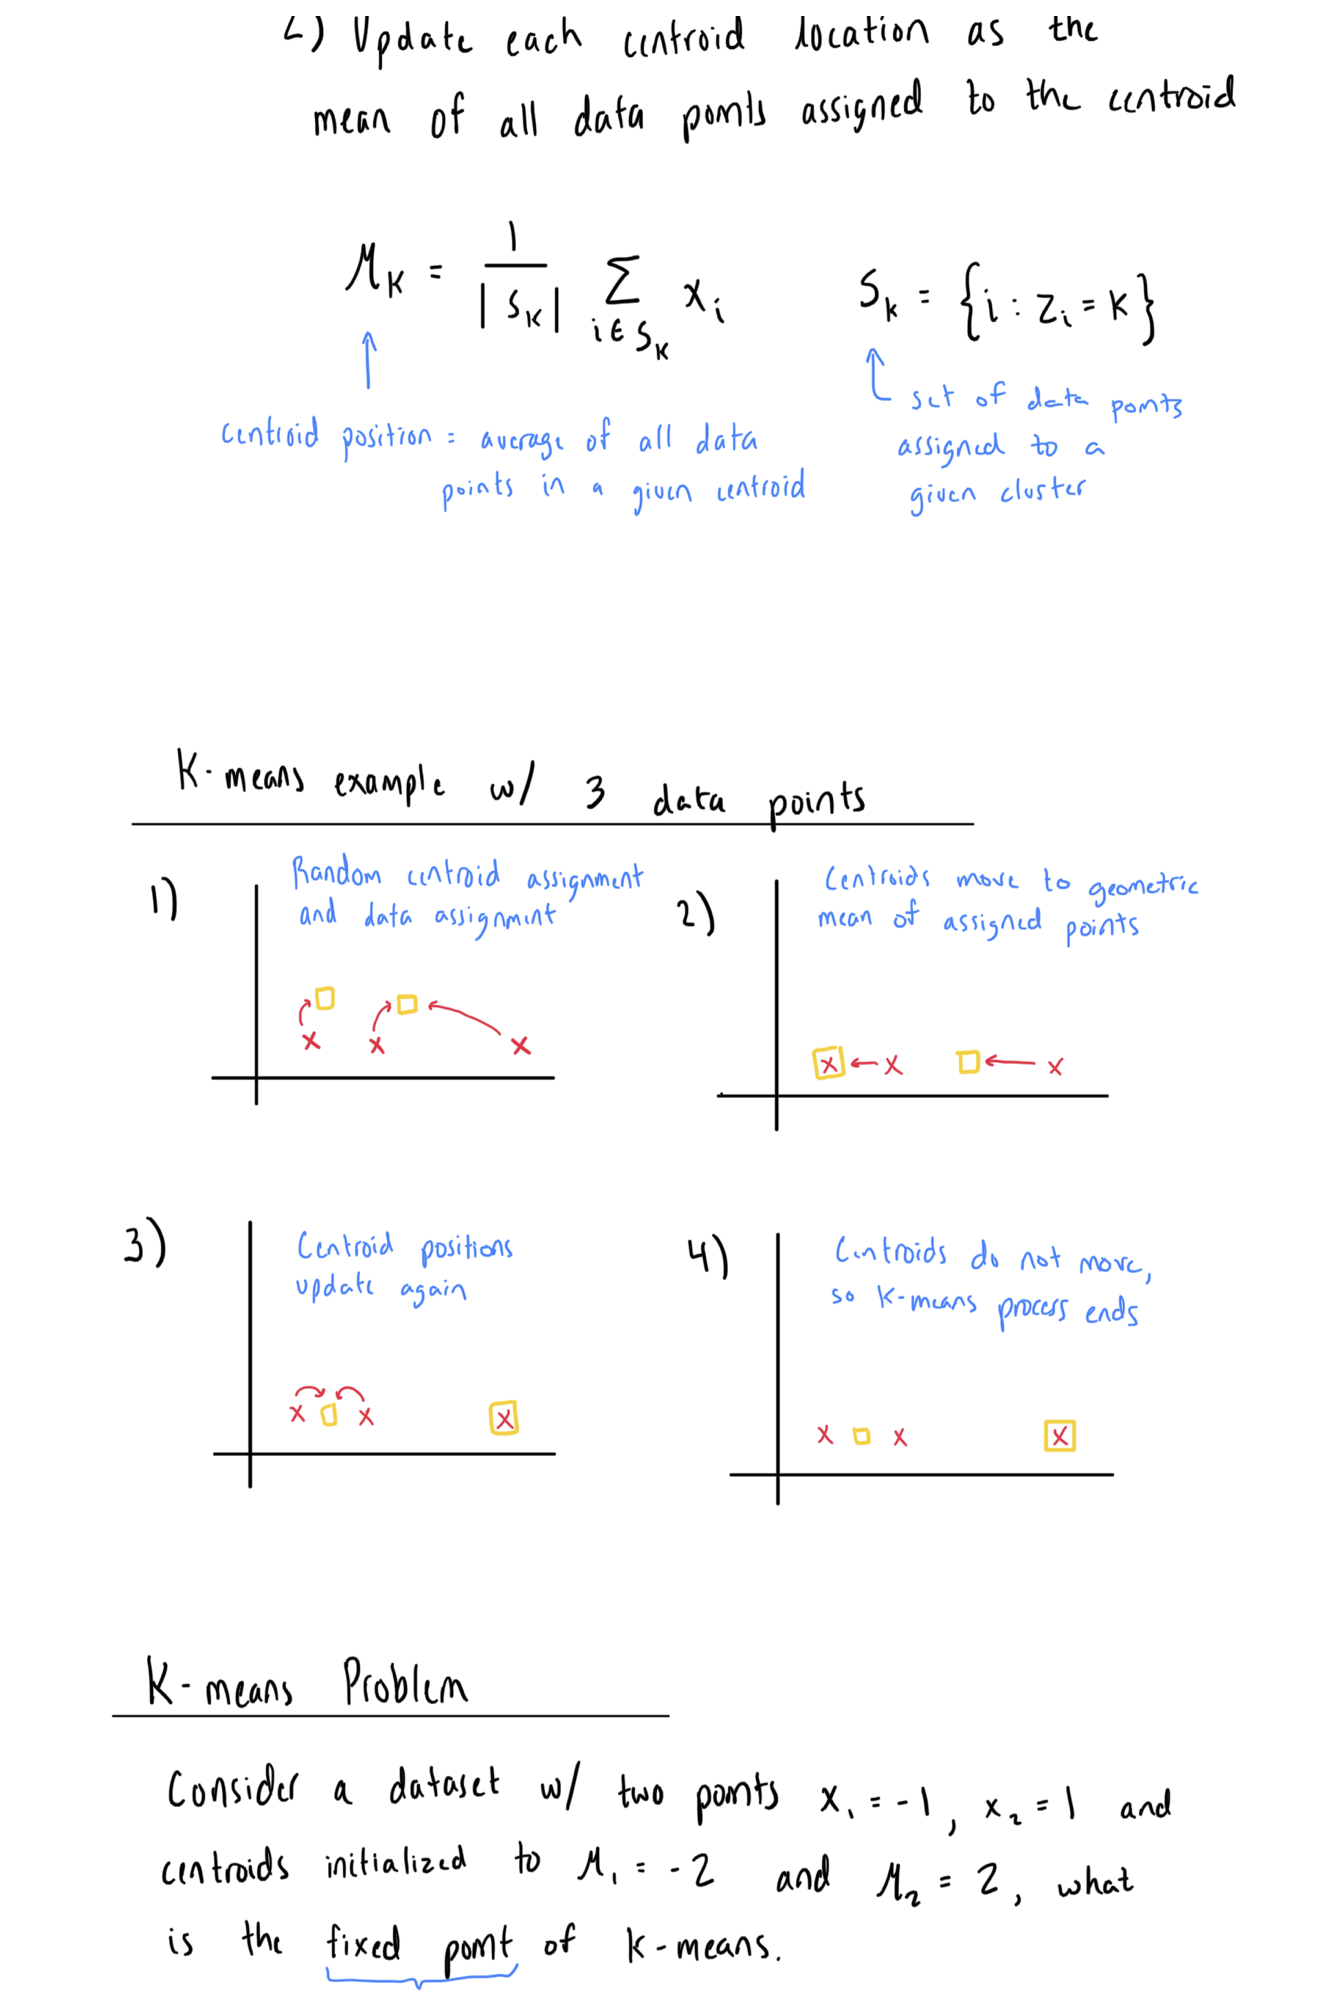 2) Update each centroid location as the
mean of all data points assigned to the centroid
μ_K = 1/|S_K| Σ_{i∈S_K} x_i   S_k = {i : z_i = K}
centroid position = average of all data
points in a given centroid
set of data points
assigned to a
given cluster
K-means example w/ 3 data points
1)
Random centroid assignment
and data assignment
2)
Centroids move to geometric
mean of assigned points
3)
Centroid positions
update again
4)
Centroids do not move,
so K-means process ends
K-means Problem
Consider a dataset w/ two points x₁ = -1, x₂ = 1 and
centroids initialized to μ₁ = -2 and μ₂ = 2, what
is the fixed point of K-means.